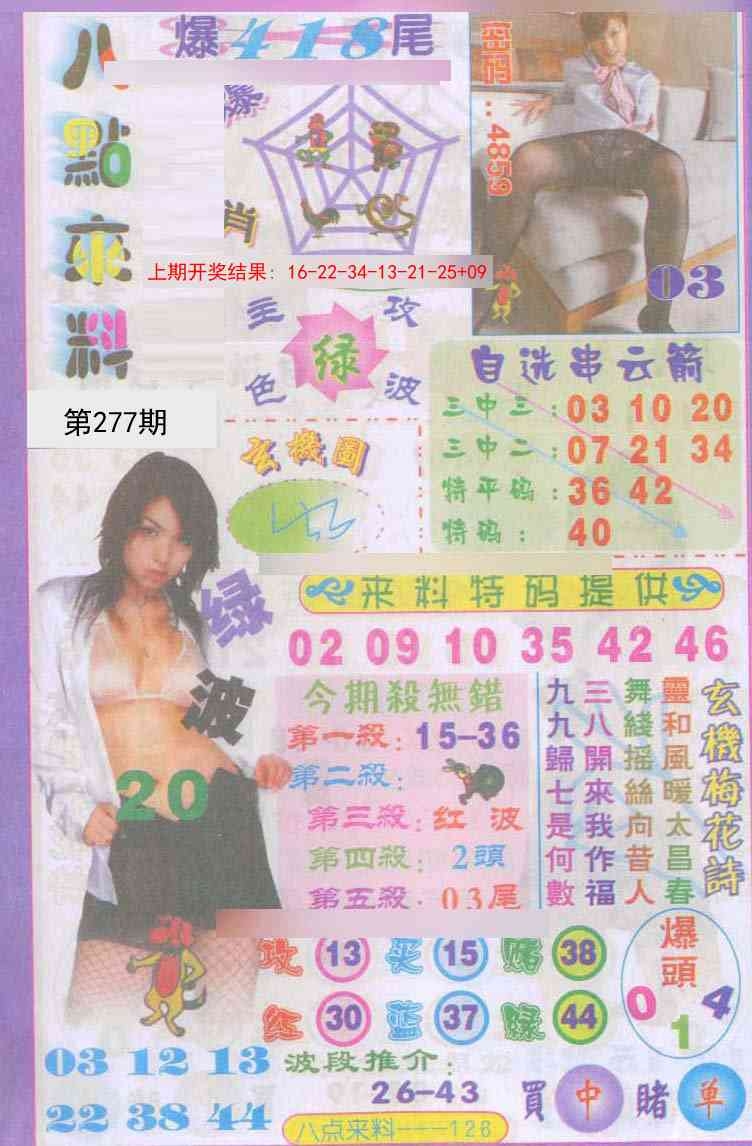 八點來料
爆418尾
密碼:4859
爆
肖
03
上期开奖结果: 16-22-34-13-21-25+09
主攻
绿
色波
第277期
自选串云箭
三中三:03 10 20
三中二:07 21 34
特平码:36 42
特码:40
玄機圖
来料特码提供
02 09 10 35 42 46
绿波
20
今期殺無錯
第一殺:15-36
第二殺:
第三殺:红波
第四殺:2頭
第五殺:03尾
玄機梅花詩
靈和風暖太昌春
舞綫摇絲向昔人
三八開來我作福
九九歸七是何數
攻 13 买 15 赌 38
红 30 蓝 37 绿 44
爆頭
0 1 4
03 12 13
22 38 44
波段推介:
26-43
買中賭单
八点来料---128